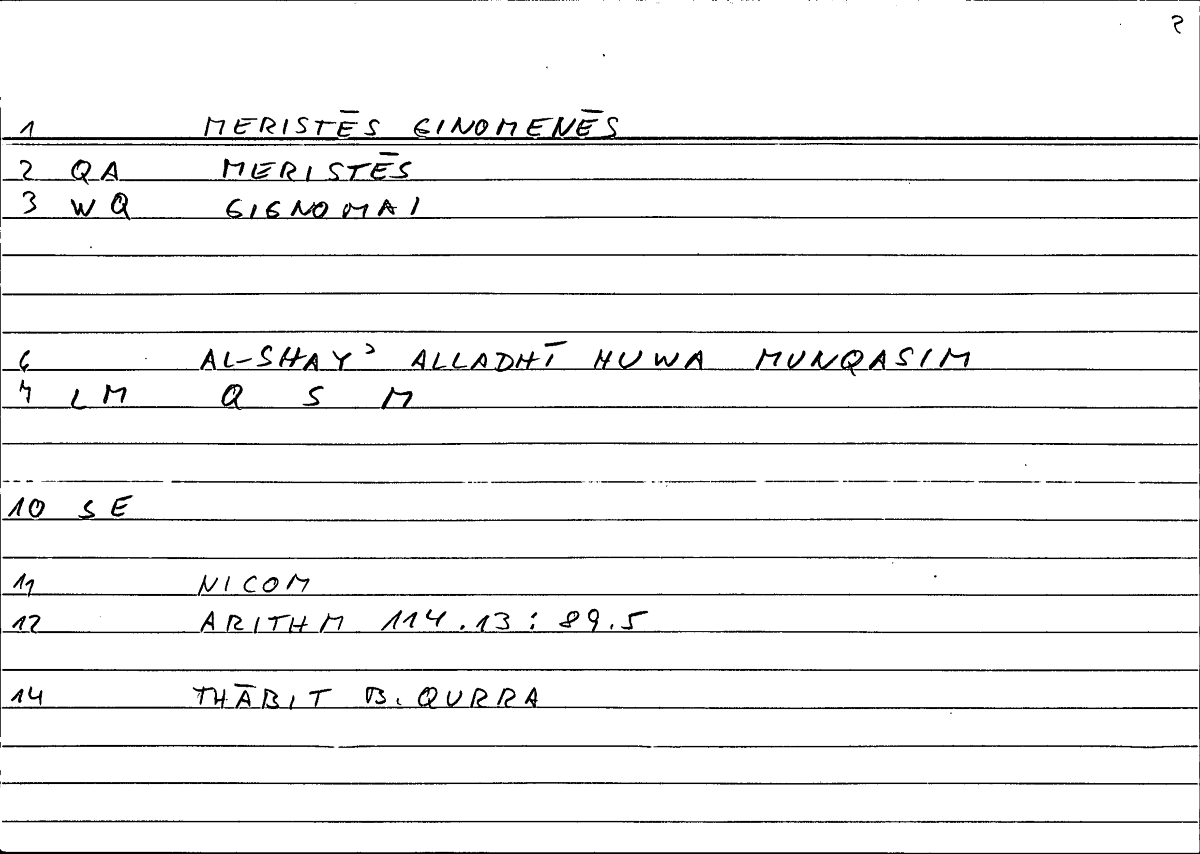 2
1 MERISTĒS GINOMENĒS
2 QA MERISTĒS
3 WQ GIGNOMAI
6 AL-SHAYʾ ALLADHĪ HUWA MUNQASIM
7 LM Q S M
10 SE
11 NICOM
12 ARITHM 114.13 : 89.5
14 THĀBIT B. QURRA